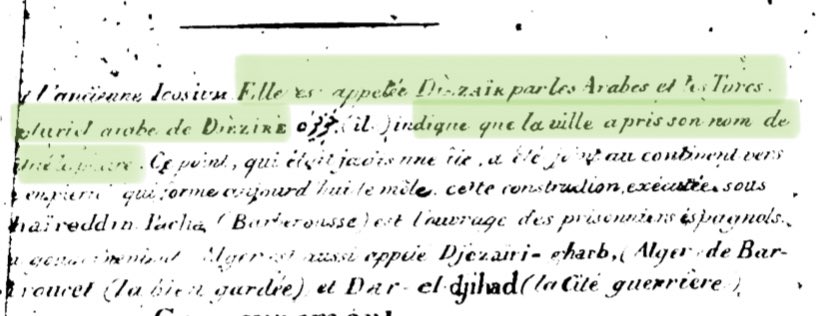 l'ancienne Icosium. Elle est appelée Djezaïr par les Arabes et les Turcs.
pluriel arabe de Djeziré (il) indique que la ville a pris son nom de
Ce point, qui était jadis une île, a été joint au continent vers
qui forme aujourd'hui le môle. cette construction, exécutée sous
haïreddin Pacha (Barberousse) est l'ouvrage des prisonniers espagnols.
Alger est aussi appelé Djezaïri-gharb, (Alger de Bar-
(la bien gardée) et Dar-el-djihad (la Cité guerrière)